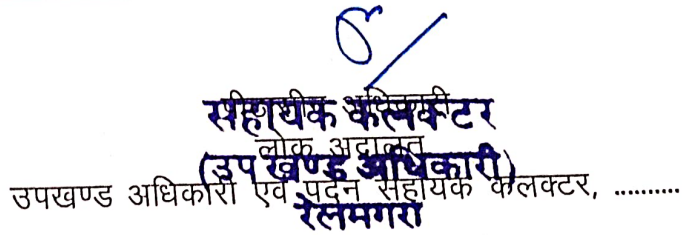 पीठासीन अधिकारी
सहायक कलक्टर
लोक अदालत
(उप खण्ड अधिकारी)
उपखण्ड अधिकारी एवं पदेन सहायक कलक्टर, ..........
रेलमगरा